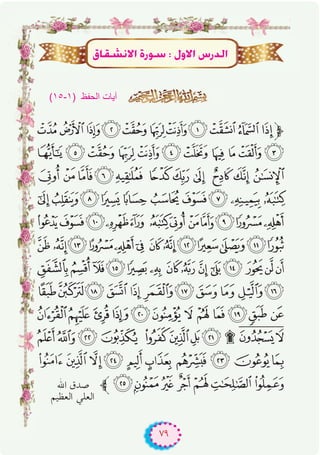 الدرس الاول : سورة الانشقاق
بِسْمِ اللَّهِ الرَّحْمَٰنِ الرَّحِيمِ آيات الحفظ (١-١٥)
﴿ إِذَا ٱلسَّمَآءُ ٱنشَقَّتْ ١ وَأَذِنَتْ لِرَبِّهَا وَحُقَّتْ ٢ وَإِذَا ٱلْأَرْضُ مُدَّتْ
٣ وَأَلْقَتْ مَا فِيهَا وَتَخَلَّتْ ٤ وَأَذِنَتْ لِرَبِّهَا وَحُقَّتْ ٥ يَٰٓأَيُّهَا
ٱلْإِنسَٰنُ إِنَّكَ كَادِحٌ إِلَىٰ رَبِّكَ كَدْحًا فَمُلَٰقِيهِ ٦ فَأَمَّا مَنْ أُوتِىَ
كِتَٰبَهُۥ بِيَمِينِهِۦ ٧ فَسَوْفَ يُحَاسَبُ حِسَابًا يَسِيرًا ٨ وَيَنقَلِبُ إِلَىٰٓ
أَهْلِهِۦ مَسْرُورًا ٩ وَأَمَّا مَنْ أُوتِىَ كِتَٰبَهُۥ وَرَآءَ ظَهْرِهِۦ ١٠ فَسَوْفَ يَدْعُوا۟
ثُبُورًا ١١ وَيَصْلَىٰ سَعِيرًا ١٢ إِنَّهُۥ كَانَ فِىٓ أَهْلِهِۦ مَسْرُورًا ١٣ إِنَّهُۥ ظَنَّ
أَن لَّن يَحُورَ ١٤ بَلَىٰٓ إِنَّ رَبَّهُۥ كَانَ بِهِۦ بَصِيرًا ١٥ فَلَآ أُقْسِمُ بِٱلشَّفَقِ
١٦ وَٱلَّيْلِ وَمَا وَسَقَ ١٧ وَٱلْقَمَرِ إِذَا ٱتَّسَقَ ١٨ لَتَرْكَبُنَّ طَبَقًا
عَن طَبَقٍ ١٩ فَمَا لَهُمْ لَا يُؤْمِنُونَ ٢٠ وَإِذَا قُرِئَ عَلَيْهِمُ ٱلْقُرْءَانُ
لَا يَسْجُدُونَ ۩ ٢١ بَلِ ٱلَّذِينَ كَفَرُوا۟ يُكَذِّبُونَ ٢٢ وَٱللَّهُ أَعْلَمُ
بِمَا يُوعُونَ ٢٣ فَبَشِّرْهُم بِعَذَابٍ أَلِيمٍ ٢٤ إِلَّا ٱلَّذِينَ ءَامَنُوا۟
وَعَمِلُوا۟ ٱلصَّٰلِحَٰتِ لَهُمْ أَجْرٌ غَيْرُ مَمْنُونٍۭ ٢٥ ﴾
صدق الله
العلي العظيم
٧٩